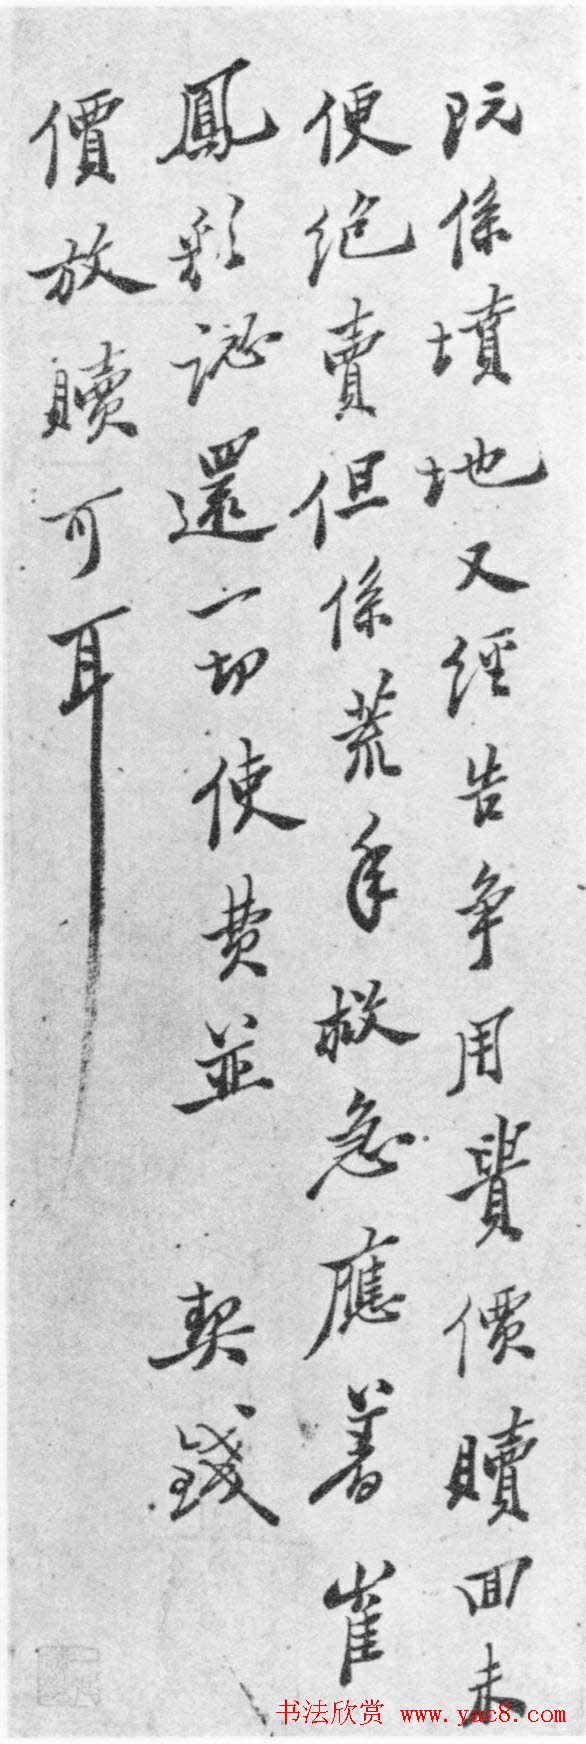 既係墳地又經告争用貲價贖回未
便絕賣但係荒年救急應着崔
鳳彩認還一切使费並 契錢
價放贖可耳
书法欣赏 www.yac8.com